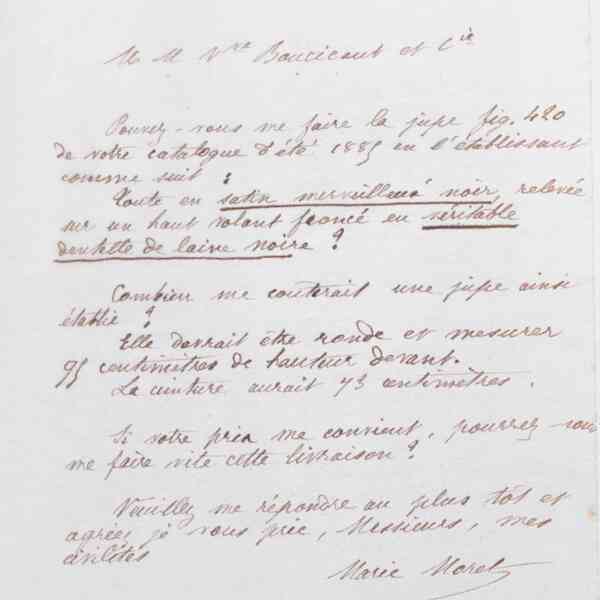 M M Vve Boucicaut et Cie
Pouvez-vous me faire la jupe fig. 420
de votre catalogue d'été 1885 en l'établissant
comme suit :
Toute en satin merveilleux noir, relevée
sur un haut volant froncé en véritable
dentelle de laine noire ?
Combien me coûterait une jupe ainsi
établie ?
Elle devrait être ronde et mesurer
95 centimètres de hauteur devant.
La ceinture aurait 73 centimètres.
Si votre prix me convient, pourrez-vous
me faire vite cette livraison ?
Veuillez me répondre au plus tôt et
agréez, je vous prie, Messieurs, mes
civilités
Marie Moret